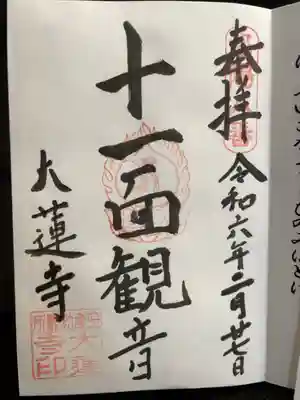 奉拝
令和六年二月廿七日
十一面観音
大蓮寺